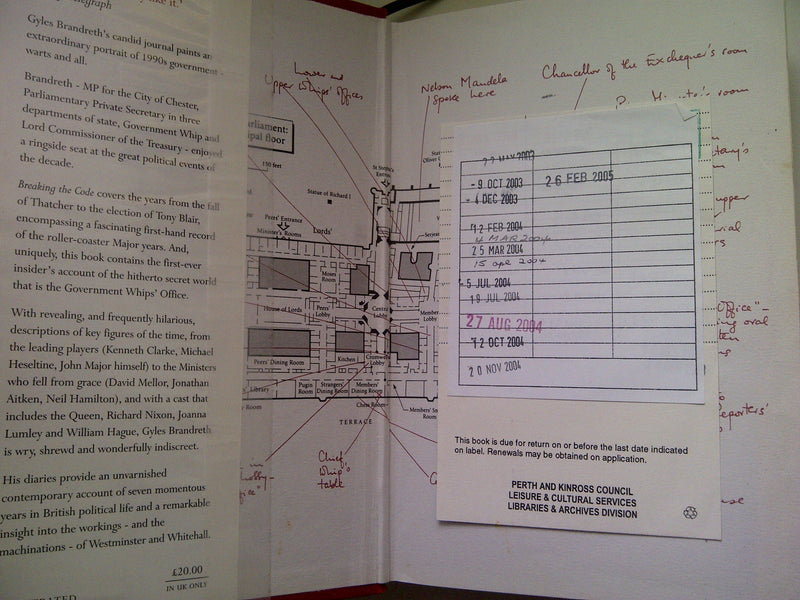 like it.'
Gyles Brandreth's candid journal paints an
extraordinary portrait of 1990s government -
warts and all.
Brandreth - MP for the City of Chester,
Parliamentary Private Secretary in three
departments of state, Government Whip and
Lord Commissioner of the Treasury - enjoyed
a ringside seat at the great political events of
the decade.
Breaking the Code covers the years from the fall
of Thatcher to the election of Tony Blair,
encompassing a fascinating first-hand record
of the roller-coaster Major years. And,
uniquely, this book contains the first-ever
insider's account of the hitherto secret world
that is the Government Whips' Office.
With revealing, and frequently hilarious,
descriptions of key figures of the time, from
the leading players (Kenneth Clarke, Michael
Heseltine, John Major himself) to the Ministers
who fell from grace (David Mellor, Jonathan
Aitken, Neil Hamilton), and with a cast that
includes the Queen, Richard Nixon, Joanna
Lumley and William Hague, Gyles Brandreth
is wry, shrewd and wonderfully indiscreet.
His diaries provide an unvarnished
contemporary account of seven momentous
years in British political life and a remarkable
insight into the workings - and the
machinations - of Westminster and Whitehall.
£20.00
IN UK ONLY
Lower and
Upper Whips' Offices
150 feet
Statue of Richard I
St Stephen's
Entrance
Peers' Entrance
Minister's Rooms
Lords'
Moses
Room
House of Lords
Peers'
Lobby
Central
Lobby
Peers' Dining Room
Kitchen
Commons
Lobby
Library
Pugin
Room
Strangers'
Dining Room
Members'
Dining Room
Chess Room
TERRACE
Chief
Whip's
table
Nelson Mandela
spoke here
Chancellor of the Exchequer's room
room
22 MAY 2003
- 9 OCT 2003
26 FEB 2005
- 4 DEC 2003
12 FEB 2004
4 MAR 2004
25 MAR 2004
15 apr 2004
- 5 JUL 2004
19 JUL 2004
27 AUG 2004
12 OCT 2004
20 NOV 2004
This book is due for return on or before the last date indicated
on label. Renewals may be obtained on application.
PERTH AND KINROSS COUNCIL
LEISURE & CULTURAL SERVICES
LIBRARIES & ARCHIVES DIVISION